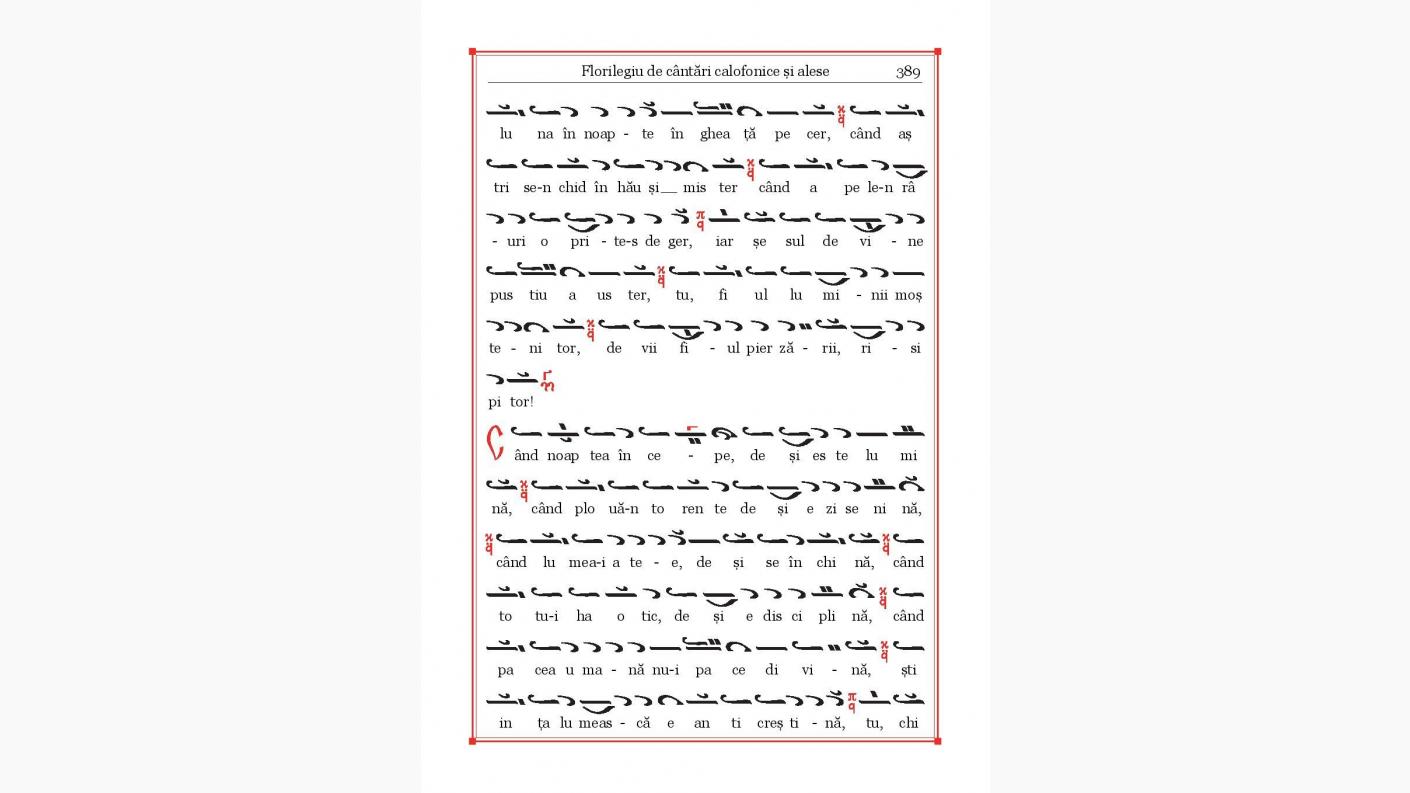 Florilegiu de cântări calofonice și alese 389
lu na în noap - te în ghea ță pe cer, când aș
tri se-n chid în hău și__ mis ter când a pe le-n râ
- uri o pri - te-s de ger, iar șe sul de vi - ne
pus tiu a us ter, tu, fi ul lu mi - nii moș
te - ni tor, de vii fi - ul pier ză - rii, ri - si
pi tor!
Când noap tea în ce - pe, de și es te lu mi
nă, când plo uă-n to ren te de și e zi se ni nă,
când lu mea-i a te - e, de și se în chi nă, când
to tu-i ha o tic, de și e dis ci pli nă, când
pa cea u ma - nă nu-i pa ce di vi - nă, ști
in ța lu meas - că e an ti creș ti - nă, tu, chi